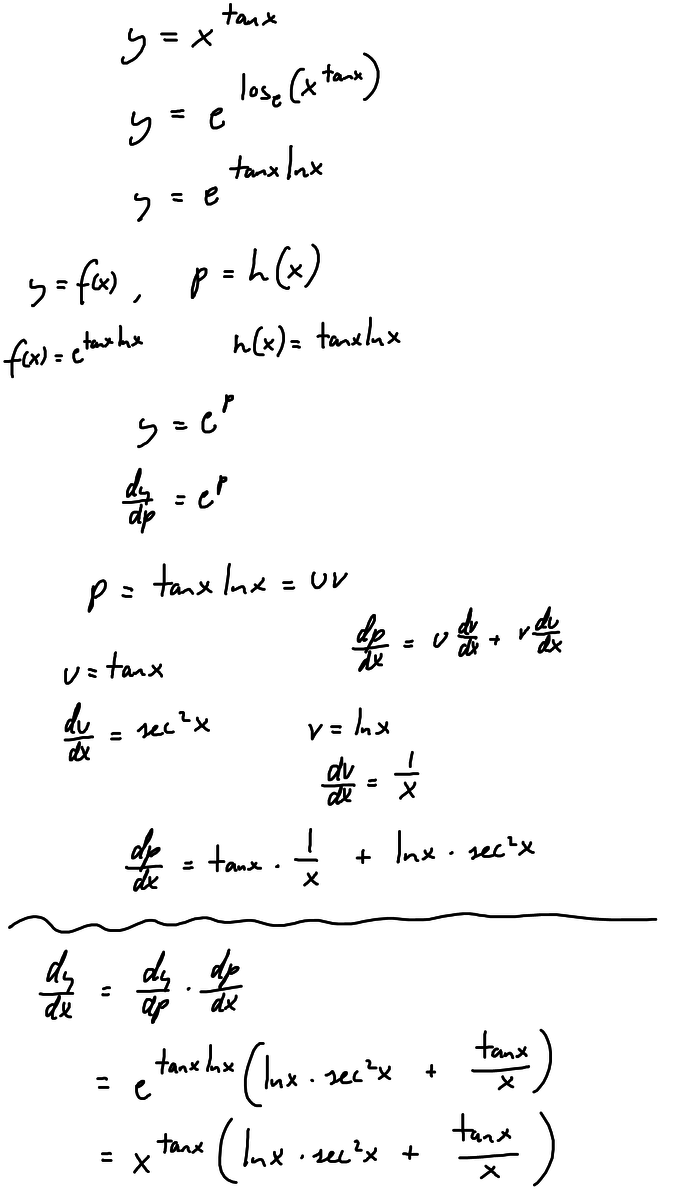 y = x^{tanx}
y = e^{log_e(x^{tanx})}
y = e^{tanx lnx}
y = f(x), p = h(x)
f(x) = e^{tanx lnx} h(x) = tanx lnx
y = e^p
dy/dp = e^p
p = tanx lnx = uv
dp/dx = u dv/dx + v du/dx
u = tanx
du/dx = sec²x
v = lnx
dv/dx = 1/x
dp/dx = tanx · 1/x + lnx · sec²x
dy/dx = dy/dp · dp/dx
= e^{tanx lnx} (lnx · sec²x + tanx/x)
= x^{tanx} (lnx · sec²x + tanx/x)